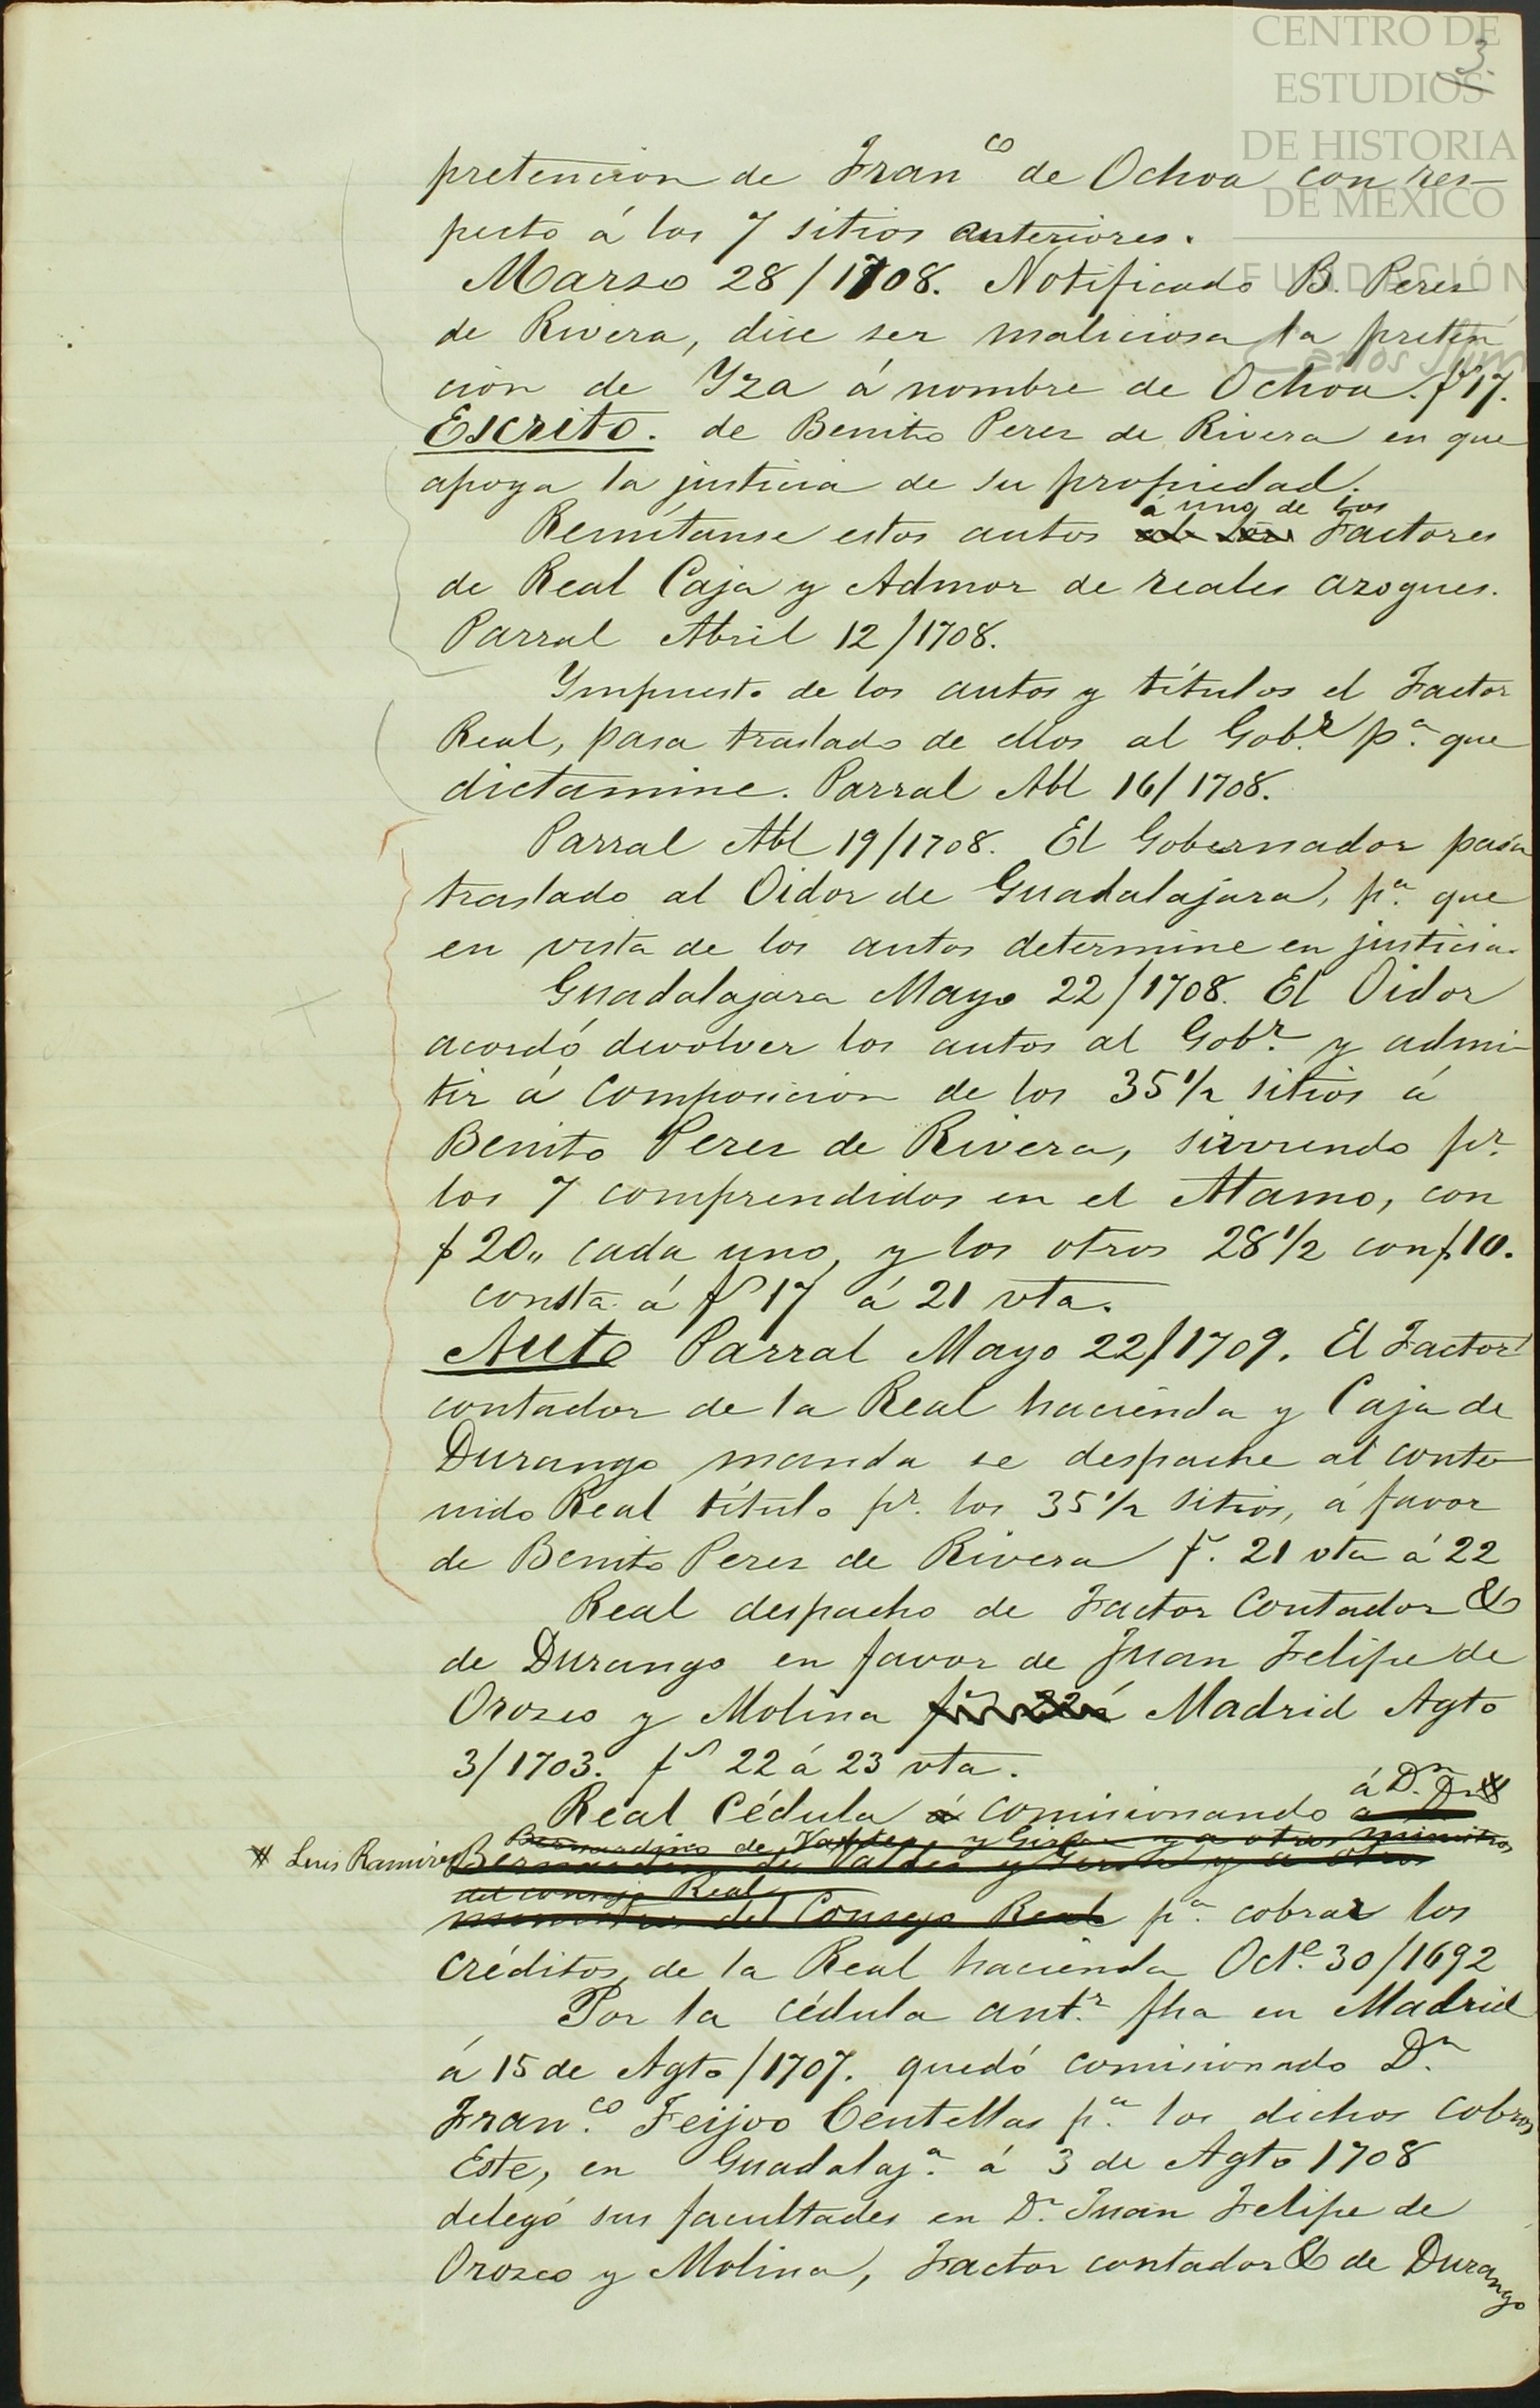 CENTRO DE
ESTUDIOS
DE HISTORIA
DE MEXICO
FUNDACIÓN
Carlos Slim
3.
pretencion de Fran.co de Ochoa con res-
pecto á los 7 sitios anteriores.
Marso 28/1708. Notificado B. Peres
de Rivera, dice ser maliciosa la preten
cion de Yza á nombre de Ochoa. fs 17.
Escrito. de Benito Peres de Rivera en que
apoya la justicia de su propiedad.
á uno de los
Remítanse estos autos al los Factores
de Real Caja y Admor de reales azogues.
Parral Abril 12/1708.
Ympuesto de los autos y títulos el Factor
Real, pasa traslado de ellos al Gob.r p.a que
dictamine. Parral Abl 16/1708.
Parral Abl 19/1708. El Gobernador pasa
traslado al Oidor de Guadalajara, p.a que
en vista de los autos determine en justicia.
Guadalajara Mayo 22/1708. El Oidor
acordó devolver los autos al Gob.r y admi-
tir á composicion de los 35 1/2 sitios á
Benito Peres de Rivera, sirviendo p.r
los 7 comprendidos en el Alamo, con
$ 20,, cada uno, y los otros 28 1/2 con $ 10.
consta á fs 17 á 21 vta.
Auto Parral Mayo 22/1709. El Factor
contador de la Real hacienda y Caja de
Durango manda se despache al conte
nido Real título p.r los 35 1/2 sitios, á favor
de Benito Peres de Rivera f. 21 vta á 22
Real despacho de Factor Contador &
de Durango en favor de Juan Felipe de
Orozco y Molina Madrid Agto
3/1703. fs 22 á 23 vta.
á D.n
Real Cédula á comisionando a
Bernardino de Valdes y Giron y a otros ministros
# Luis Ramires Bernardino de Valdes y Giron y a otros
del consejo Real
ministros del Consejo Real p.a cobrar los
créditos de la Real hacienda Oct.e 30/1692
Por la cédula ant.r fha en Madrid
á 15 de Agto/1707. quedó comisionado D.n
Fran.co Feijoo Centellas p.a los dichos cobros
Este, en Guadalaj.a á 3 de Agto 1708
delegó sus facultades en D.n Juan Felipe de
Orozco y Molina, Factor contador & de Durango